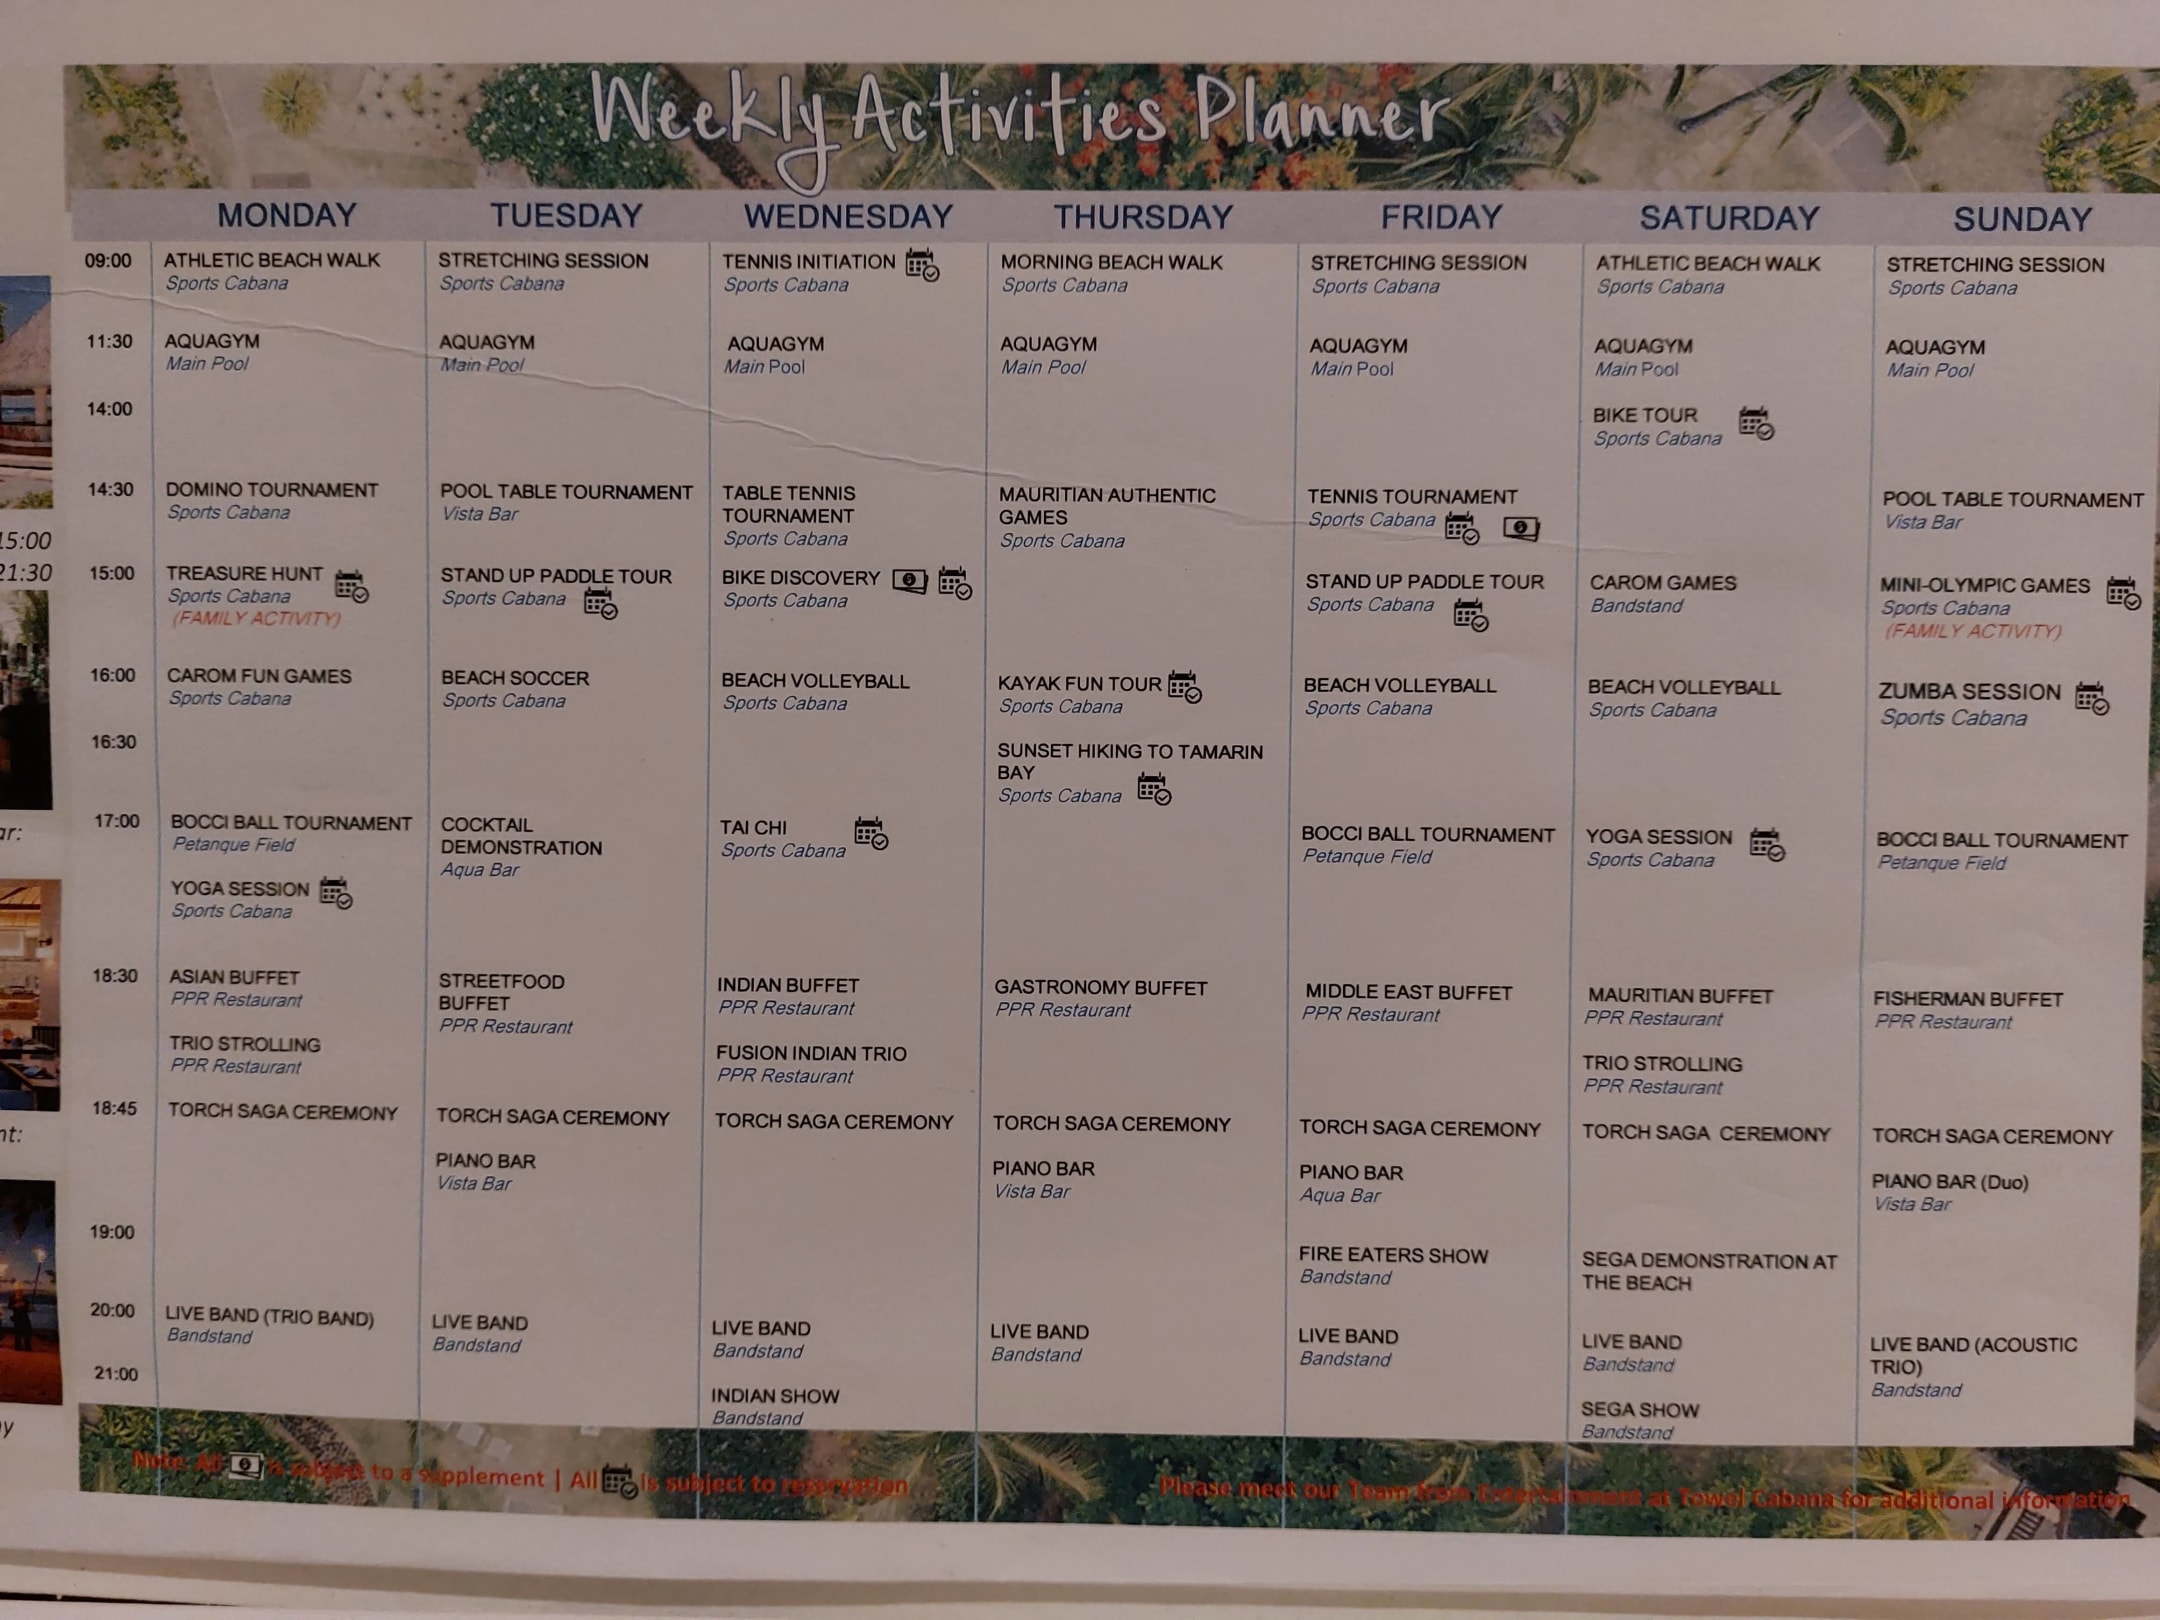 Weekly Activities Planner
MONDAY TUESDAY WEDNESDAY THURSDAY FRIDAY SATURDAY SUNDAY
09:00
ATHLETIC BEACH WALK
Sports Cabana
STRETCHING SESSION
Sports Cabana
TENNIS INITIATION
Sports Cabana
MORNING BEACH WALK
Sports Cabana
STRETCHING SESSION
Sports Cabana
ATHLETIC BEACH WALK
Sports Cabana
STRETCHING SESSION
Sports Cabana
11:30
AQUAGYM
Main Pool
AQUAGYM
Main Pool
AQUAGYM
Main Pool
AQUAGYM
Main Pool
AQUAGYM
Main Pool
AQUAGYM
Main Pool
AQUAGYM
Main Pool
14:00
BIKE TOUR
Sports Cabana
14:30
DOMINO TOURNAMENT
Sports Cabana
POOL TABLE TOURNAMENT
Vista Bar
TABLE TENNIS
TOURNAMENT
Sports Cabana
MAURITIAN AUTHENTIC
GAMES
Sports Cabana
TENNIS TOURNAMENT
Sports Cabana
POOL TABLE TOURNAMENT
Vista Bar
15:00
21:30
15:00
TREASURE HUNT
Sports Cabana
(FAMILY ACTIVITY)
STAND UP PADDLE TOUR
Sports Cabana
BIKE DISCOVERY
Sports Cabana
STAND UP PADDLE TOUR
Sports Cabana
CAROM GAMES
Bandstand
MINI-OLYMPIC GAMES
Sports Cabana
(FAMILY ACTIVITY)
16:00
CAROM FUN GAMES
Sports Cabana
BEACH SOCCER
Sports Cabana
BEACH VOLLEYBALL
Sports Cabana
KAYAK FUN TOUR
Sports Cabana
BEACH VOLLEYBALL
Sports Cabana
BEACH VOLLEYBALL
Sports Cabana
ZUMBA SESSION
Sports Cabana
16:30
SUNSET HIKING TO TAMARIN
BAY
Sports Cabana
ar:
17:00
BOCCI BALL TOURNAMENT
Petanque Field
YOGA SESSION
Sports Cabana
COCKTAIL
DEMONSTRATION
Aqua Bar
TAI CHI
Sports Cabana
BOCCI BALL TOURNAMENT
Petanque Field
YOGA SESSION
Sports Cabana
BOCCI BALL TOURNAMENT
Petanque Field
18:30
ASIAN BUFFET
PPR Restaurant
TRIO STROLLING
PPR Restaurant
STREETFOOD
BUFFET
PPR Restaurant
INDIAN BUFFET
PPR Restaurant
FUSION INDIAN TRIO
PPR Restaurant
GASTRONOMY BUFFET
PPR Restaurant
MIDDLE EAST BUFFET
PPR Restaurant
MAURITIAN BUFFET
PPR Restaurant
TRIO STROLLING
PPR Restaurant
FISHERMAN BUFFET
PPR Restaurant
nt:
18:45
TORCH SAGA CEREMONY
TORCH SAGA CEREMONY
PIANO BAR
Vista Bar
TORCH SAGA CEREMONY
TORCH SAGA CEREMONY
PIANO BAR
Vista Bar
TORCH SAGA CEREMONY
PIANO BAR
Aqua Bar
TORCH SAGA CEREMONY
TORCH SAGA CEREMONY
PIANO BAR (Duo)
Vista Bar
19:00
FIRE EATERS SHOW
Bandstand
SEGA DEMONSTRATION AT
THE BEACH
20:00
LIVE BAND (TRIO BAND)
Bandstand
LIVE BAND
Bandstand
LIVE BAND
Bandstand
LIVE BAND
Bandstand
LIVE BAND
Bandstand
LIVE BAND
Bandstand
LIVE BAND (ACOUSTIC
TRIO)
Bandstand
21:00
INDIAN SHOW
Bandstand
SEGA SHOW
Bandstand
Note: All is subject to a supplement | All is subject to reservation
Please meet our Team from Entertainment at Towel Cabana for additional information